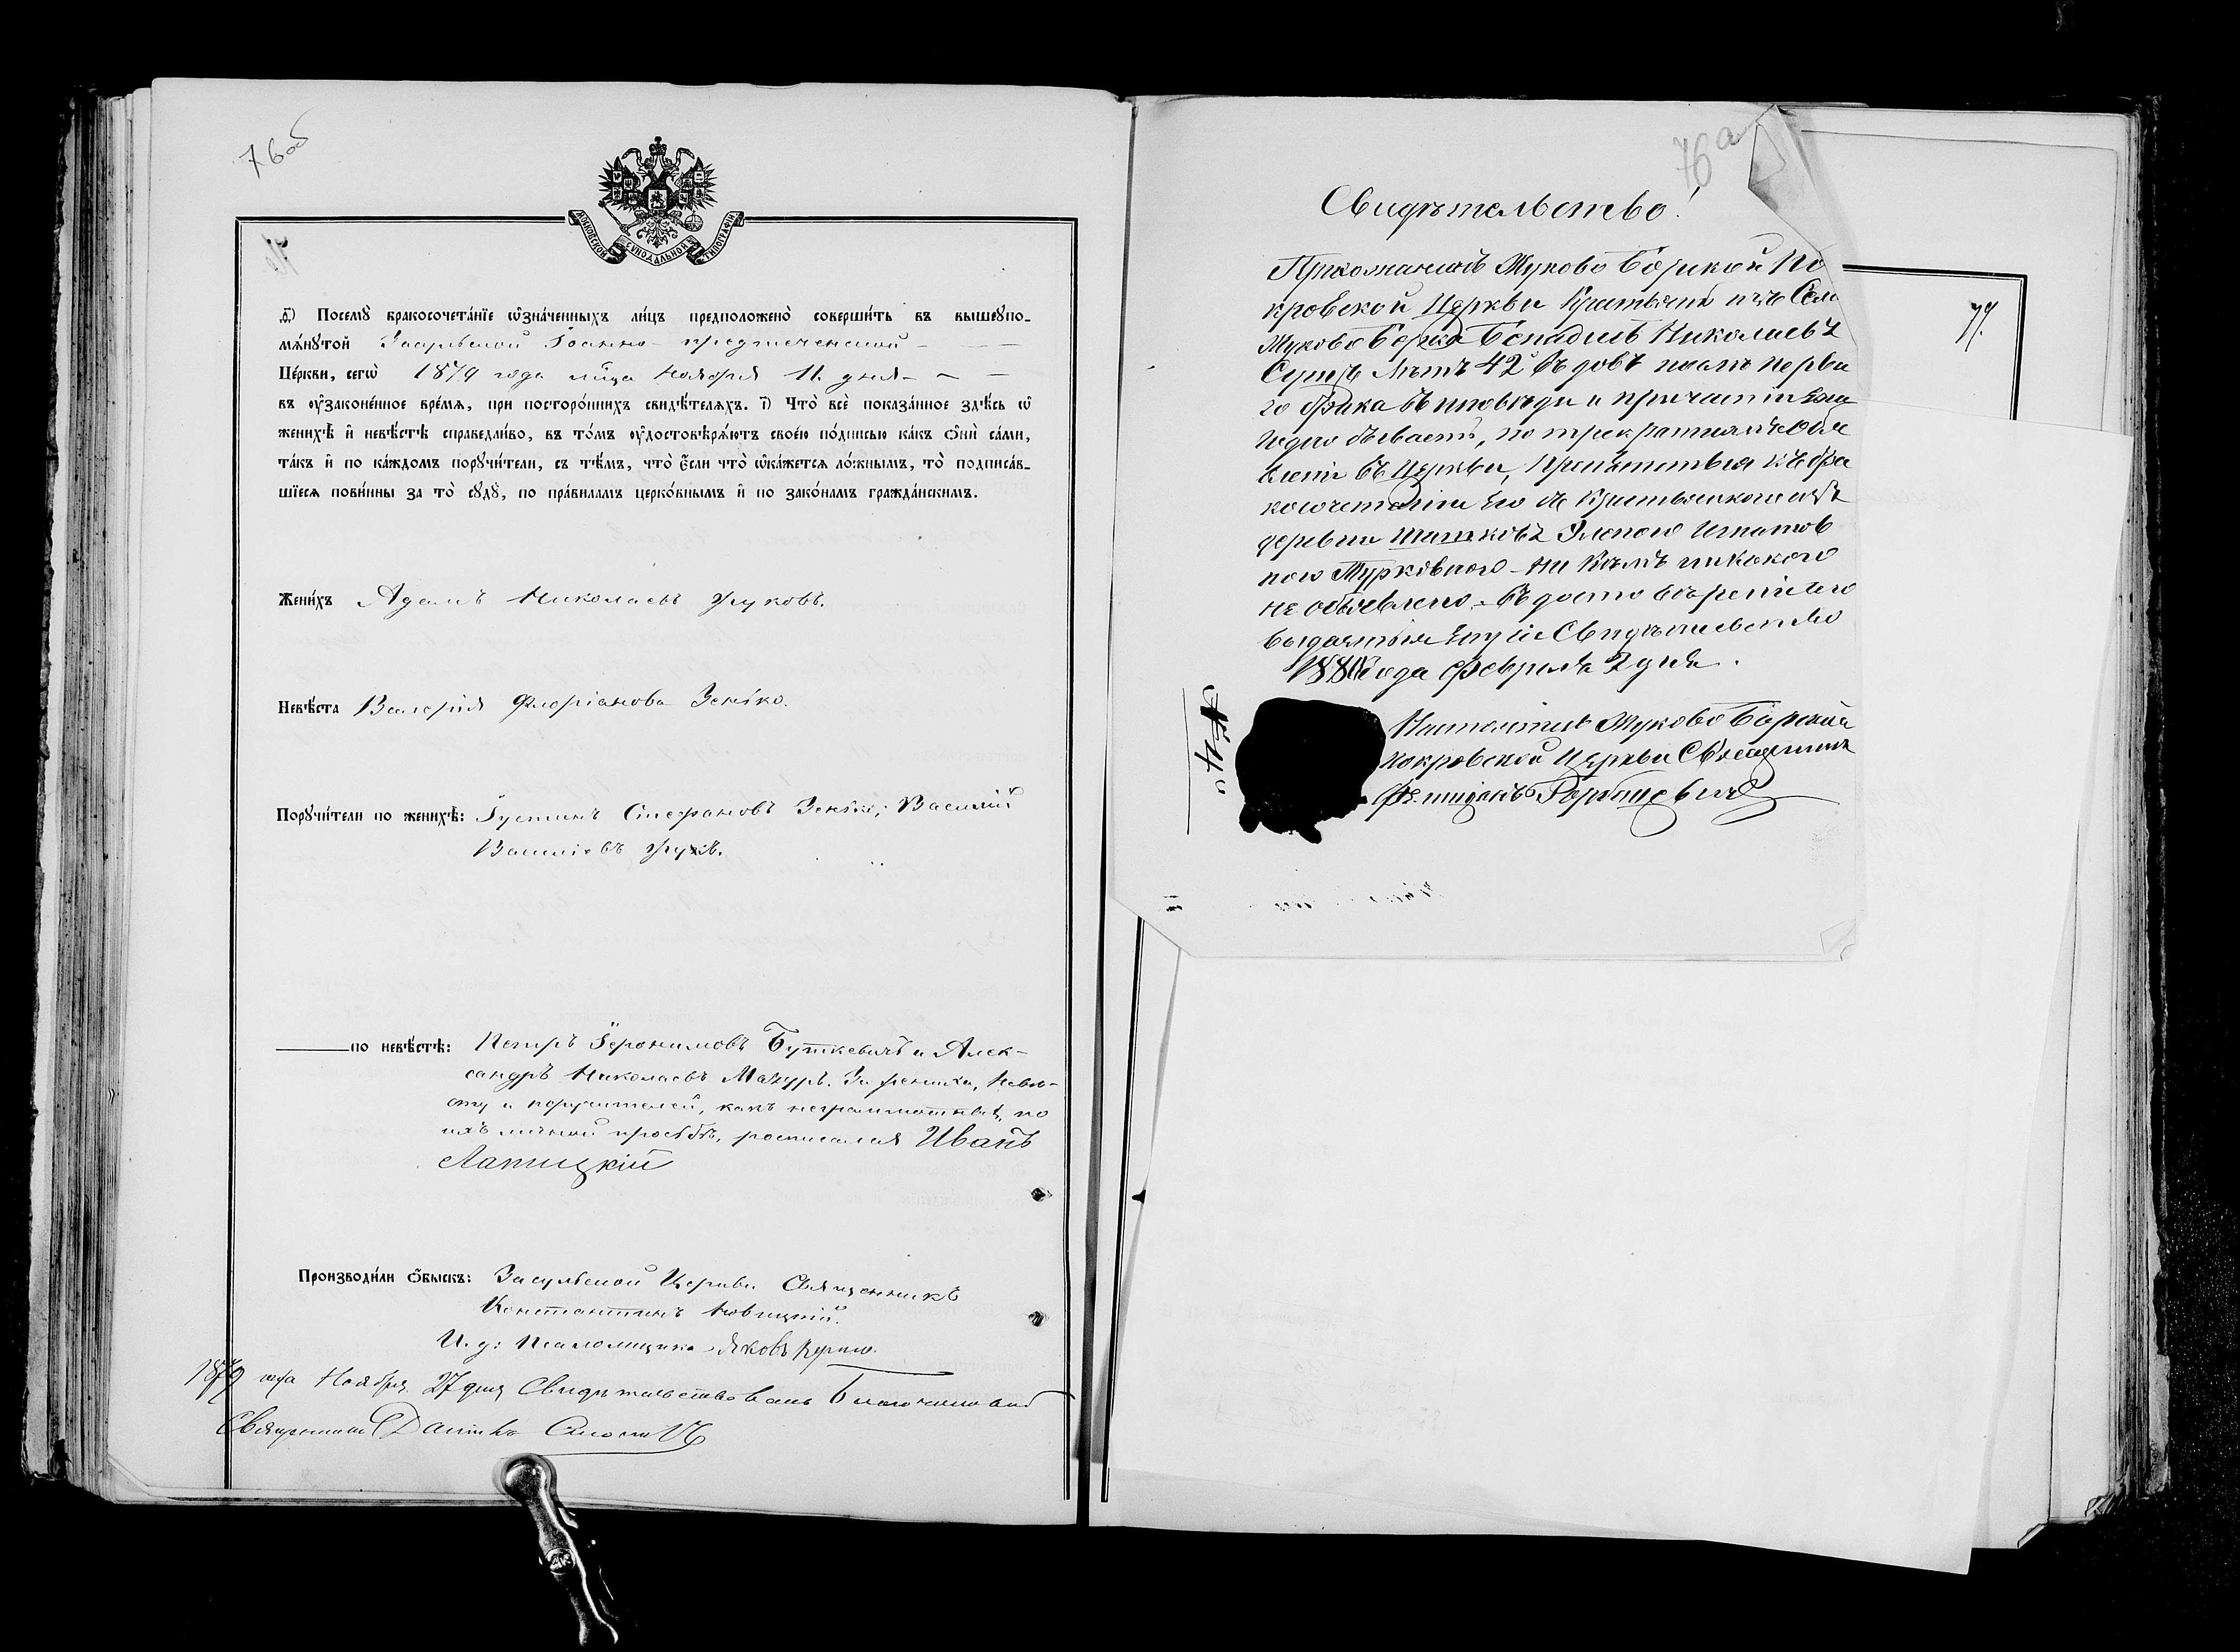 76об
МОСКОВСКОЙ СѴНОДАЛЬНОЙ ТИПОГРАФІИ
Посемꙋ̀ бракосочета́нїе ѡ҆зна́ченныхъ ли́цъ предположено̀ соверши́ть въ вышеꙋпо-
мѧ́нꙋтой Засульской Іоанно-предтеченской - - -
Це́ркви, сегѡ̀ 1879 года м҃ца Ноября 11 дня - - -
въ ᲂу҆зако́ненное вре́мѧ, при посторо́ннихъ свидѣ́телѧхъ. і҃) Что̀ всѐ пока́занное здѣ́сь ѡ҆
женихѣ̀ и҆ невѣ́стѣ справедли́во, въ то́мъ ᲂу҆достовѣрѧ́ютъ свое́ю по́дписью ка́къ ѻ҆нѝ са́ми,
та́къ и҆ по ка́ждомъ порꙋчи́тели, съ тѣ́мъ, что̀ є҆́сли что̀ ѡ҆ка́жетсѧ ло́жнымъ, то̀ подписа́в-
шїесѧ пови́нны за то̀ сꙋдꙋ̀, по пра́виламъ церко́внымъ и҆ по зако́намъ гражда́нскимъ.
Жени́хъ Адамъ Николаевъ Жуковъ.
Невѣ́ста Валерія Флоріанова Зенько.
Порꙋчи́тели по женихѣ̀: Іустинъ Стефановъ Зенько; Василій
Васильевъ Жукъ.
по невѣ́стѣ: Петръ Іеронимовъ Буткевичъ и Алек-
сандръ Николаевъ Мазуръ. За жениха, невѣ-
сту и поручителей, какъ неграмотныхъ, по
ихъ личной просьбѣ, росписался Иванъ
Лапицкій
Производи́ли ѻ҆́быскъ: Засульской Церкви Священникъ
Константинъ Новицкій.
И. д: Псаломщика Яковъ
1879 года Ноября 27 дня Свидѣтельствовалъ Благочинный
Священникъ
76а
Свидѣтельство!
Прихожанинъ Жуково Борской По
кровской Церкви Крестьянинъ изъ Села
Жуково Борка Николаевъ
лѣтъ 42 вдовъ послѣ перва
го брака въ исповѣди и причастіи еже
годно бываетъ, по трекратномъ объя
вленіи въ Церкви, препятствія къ бра
косочетанію его съ Крестьянкою изъ
деревни Еленою Игнатов
ною Турковною - ни кѣмъ никакого
не объявлено. Въ достовѣреніе чего
выдано ему сіе Свидѣтельство
1880 года Февраля 2 дня.
№ 4
Настоятель Жуково Борской
Покровской Церкви Священникъ
Горбацевичъ
77.